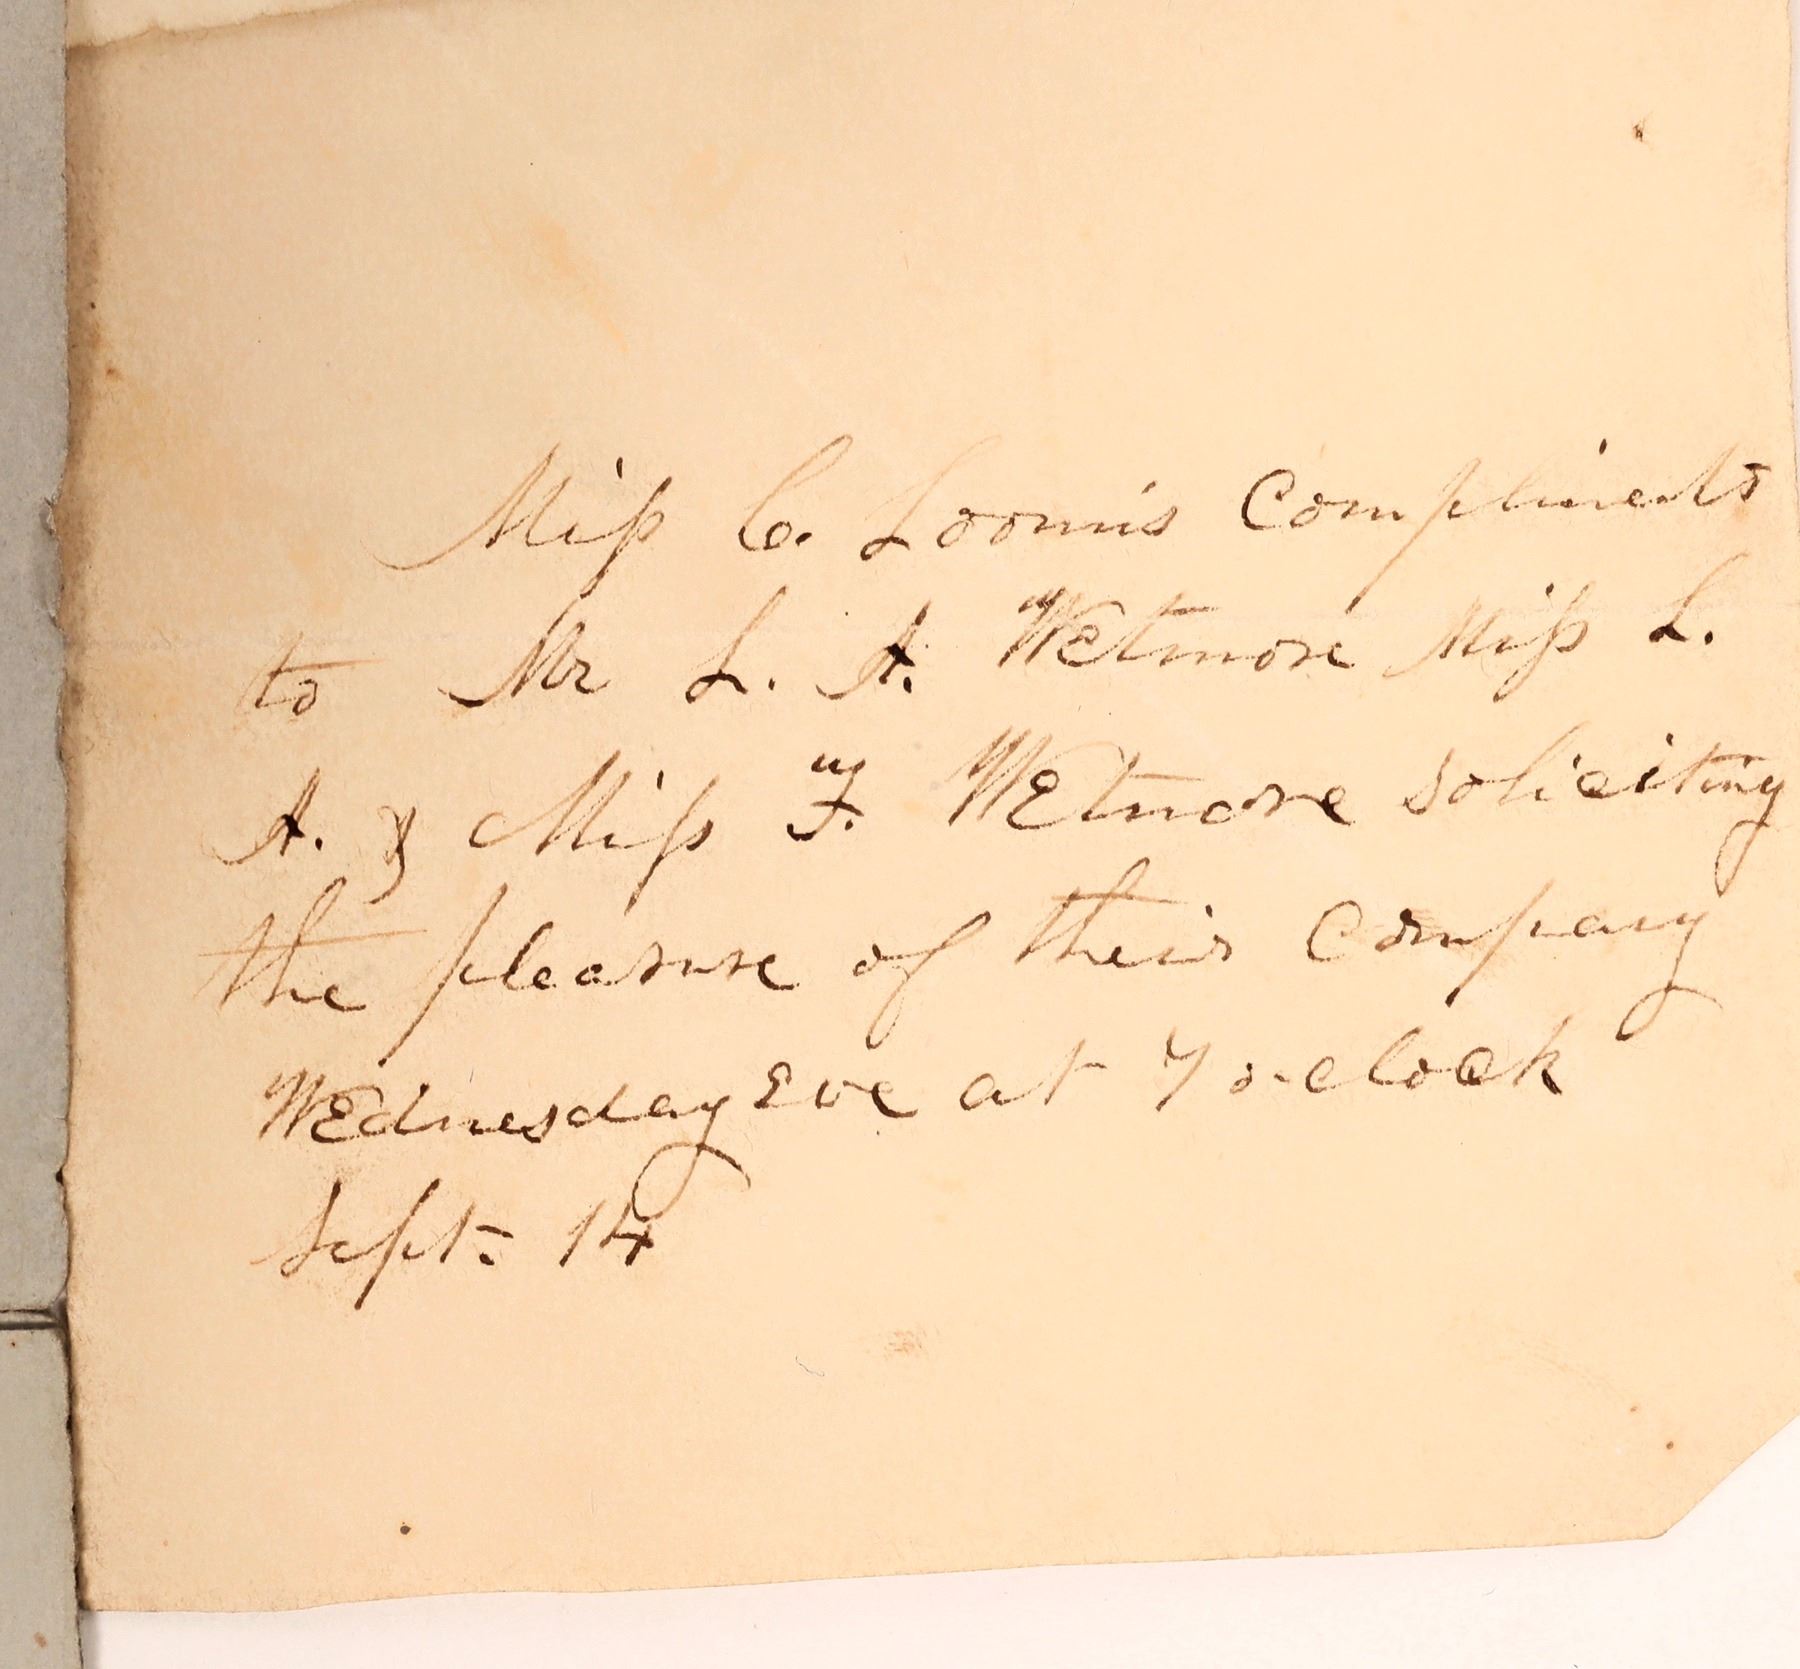 Miss C. Loomis Compliments
to Mr L. A. Wetmore Miss L.
A. & Miss F. Wetmore soliciting
the pleasure of their Company
Wednesday Eve at 7 o-clock
Sept. 14